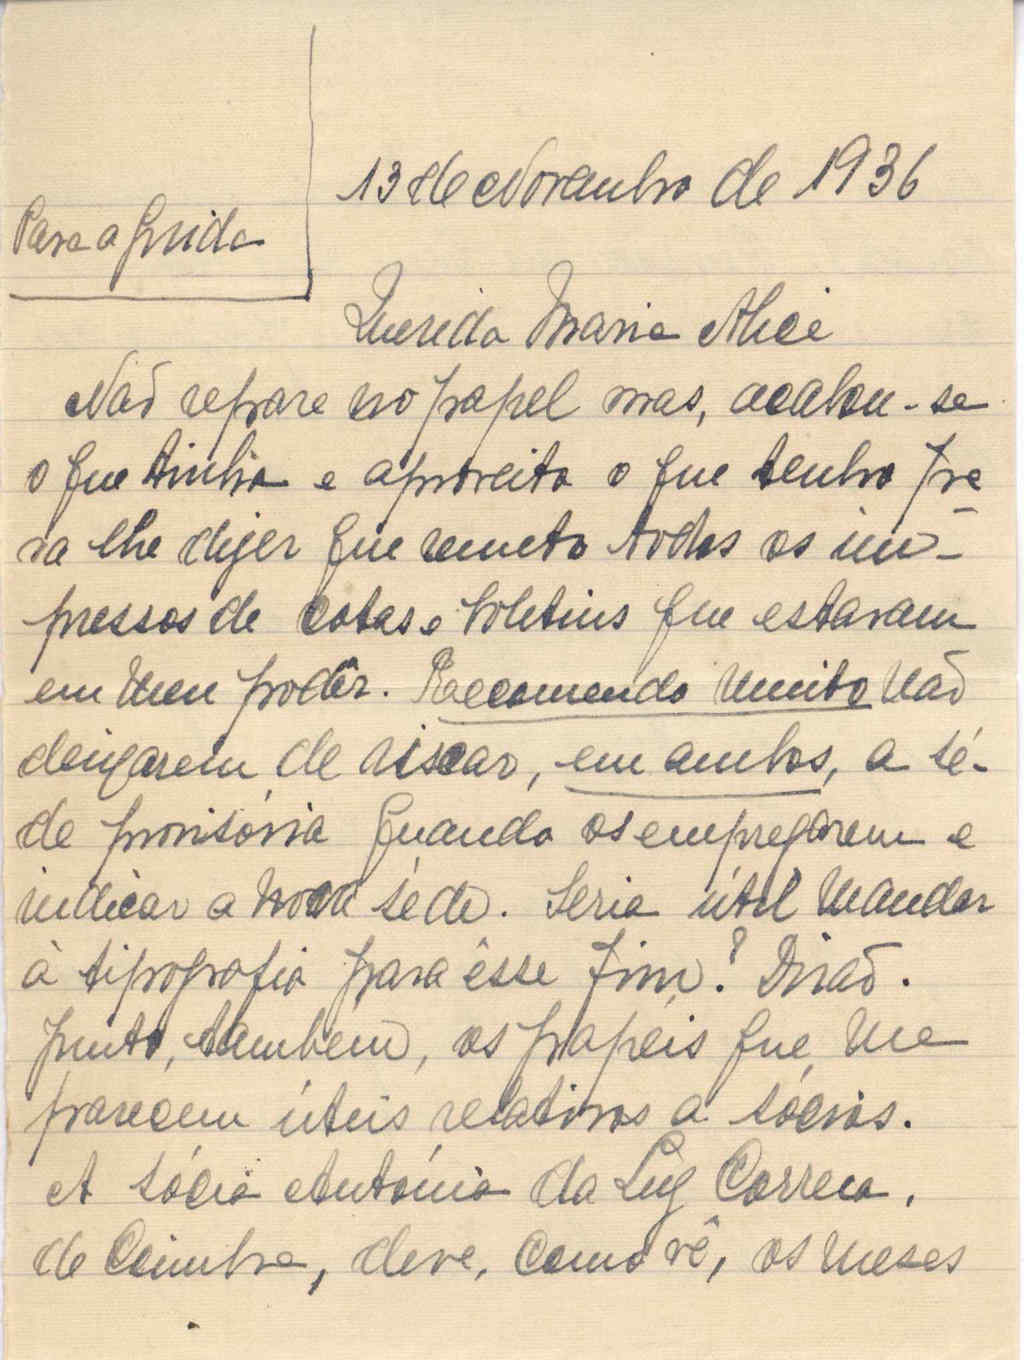 13 de Novembro de 1936
Para a Guida
Querida Maria Alice
Não repare no papel mas, acabou-se
o que tinha e aproveito o que tenho pa
ra lhe dizer que remeto todos os im-
pressos de cotas e boletins que estavam
em meu podêr. Recomendo muito não
deixarem de riscar, em ambos, a sé-
de provisória quando os empregarem e
indicar a nova séde. Seria útil mandar
à tipografia para êsse fim? Dirão.
Junto, também, os papéis que me
parecem úteis relativos a sócias.
A sócia Antónia da Luz Correia,
de Coimbra, deve, como vê, os meses